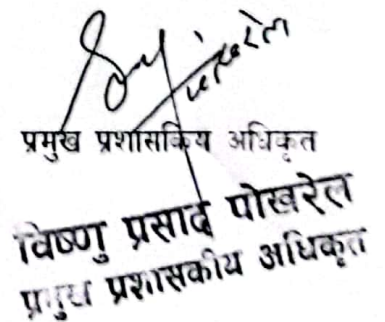 पोखरेल
प्रमुख प्रशासकिय अधिकृत
विष्णु प्रसाद पोखरेल
प्रमुख प्रशासकीय अधिकृत